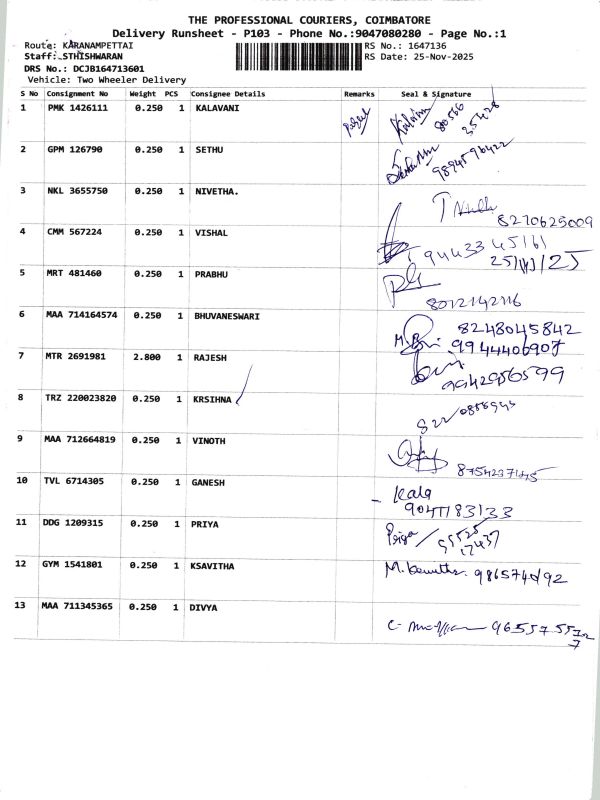 THE PROFESSIONAL COURIERS, COIMBATORE
Delivery Runsheet - P103 - Phone No.:9047080280 - Page No.:1
Route: KARANAMPETTAI RS No.: 1647136
Staff: STHISHWARAN RS Date: 25-Nov-2025
DRS No.: DCJB164713601
Vehicle: Two Wheeler Delivery
S No Consignment No Weight PCS Consignee Details Remarks Seal & Signature
1 PMK 1426111 0.250 1 KALAVANI
2 GPM 126790 0.250 1 SETHU
3 NKL 3655750 0.250 1 NIVETHA.
8270625009
4 CMM 567224 0.250 1 VISHAL
5 MRT 481460 0.250 1 PRABHU
6 MAA 714164574 0.250 1 BHUVANESWARI
8248045842
9944406907
7 MTR 2691981 2.800 1 RAJESH
9942956599
8 TRZ 220023820 0.250 1 KRSIHNA
9 MAA 712664819 0.250 1 VINOTH
10 TVL 6714305 0.250 1 GANESH
Kala
11 DDG 1209315 0.250 1 PRIYA
Priya
12 GYM 1541801 0.250 1 KSAVITHA
13 MAA 711345365 0.250 1 DIVYA